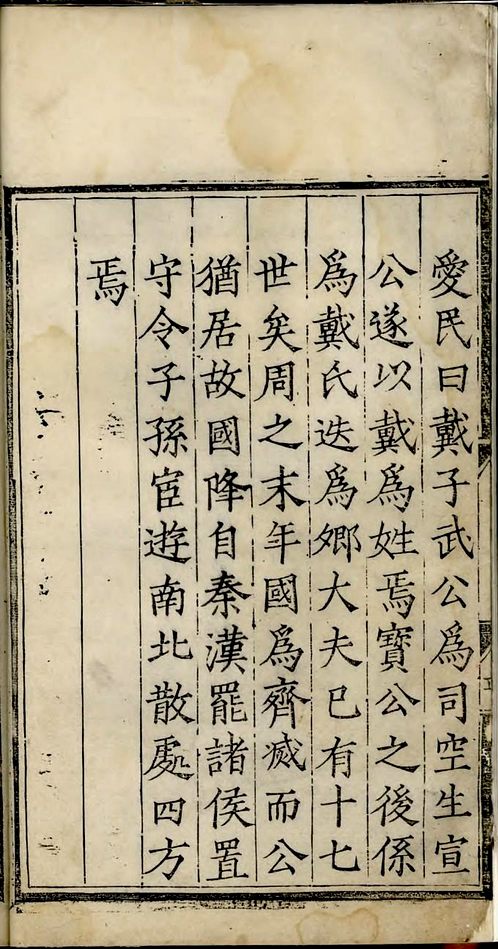 愛民曰戴子武公爲司空生宣
公遂以戴爲姓焉寶公之後係
爲戴氏迭爲鄉大夫已有十七
世矣周之末年國爲齊滅而公
猶居故國降自秦漢罷諸侯置
守令子孫宦遊南北散處四方
焉